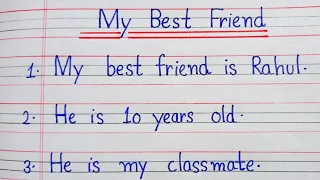 My Best Friend
1. My best friend is Rahul.
2. He is 10 years old.
3. He is my classmate.